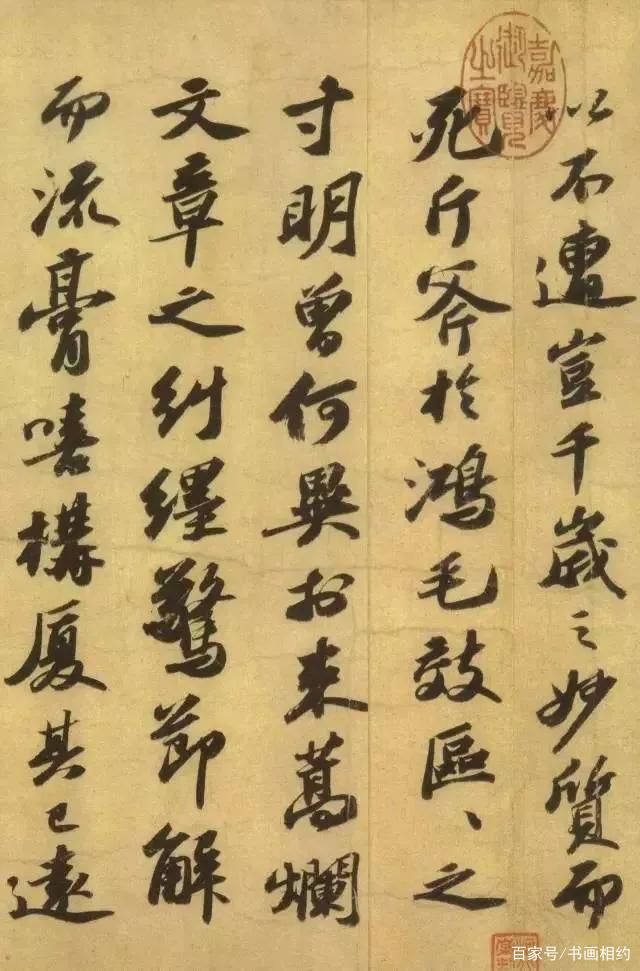 以不遭豈千歲之妙質而
死斤斧於鴻毛效區〻之
寸明曾何異於束蒿爛
文章之糾纆驚節解
而流膏嘻構厦其已遠
嘉慶御覽之寶
百家号/书画相约